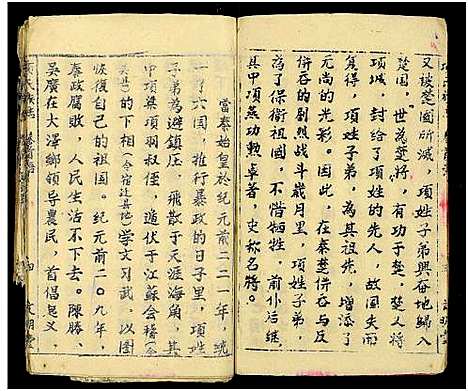 又被楚國所滅，項姓子弟興奋地歸入
楚国，世为楚将，有功于楚，楚人将
項城，封给了項姓的先人，故国失而
复得，項姓子弟，為其祖先，增添了
无尚的光彩。因此，在秦楚併吞与反
併吞的烈戰斗歲月里，項姓子弟，
為了保衛祖國，不惜牺牲，前仆后継，
其中項燕功勲卓著，史称名将。
當秦始皇於纪元前二二一年，統
一了六国，推行暴政的日子里，項姓
子弟為避鎮压，飛散于天涯海角，其
中項梁項羽叔侄，遁伏于江蘇会稽（今
吴县）下相（今宿迁县地）学文习武，以图
恢復自己的祖国。纪元前二〇九年，
秦政腐敗，人民生活不下去。陳勝、
吳廣在大澤鄉領導農民，首倡起义，